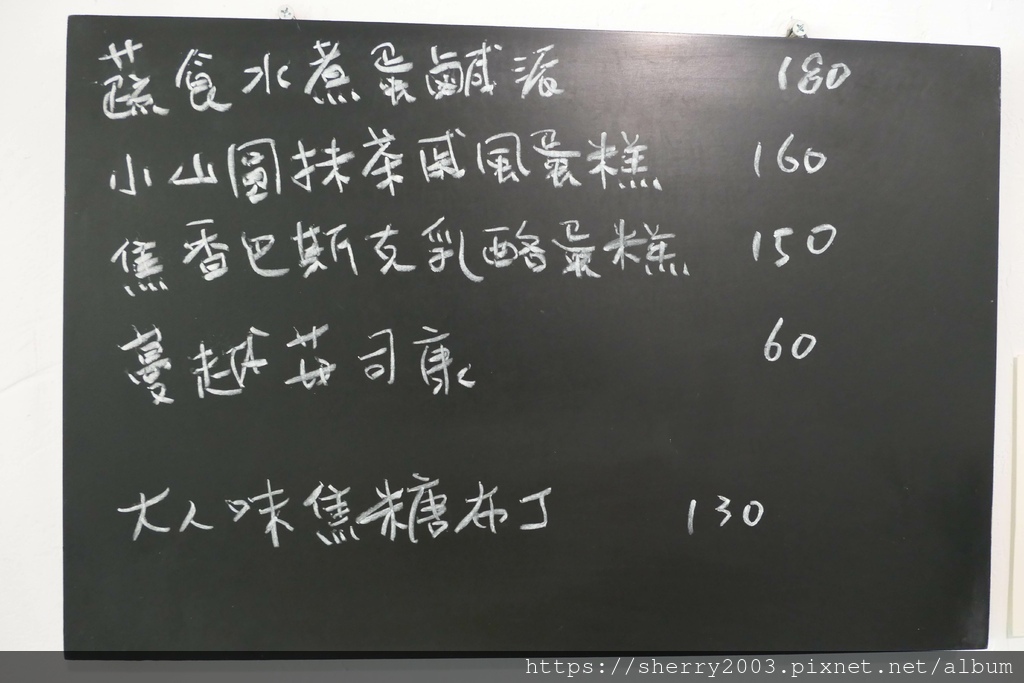 蔬食水煮蛋鹹派 180
小山圓抹茶戚風蛋糕 160
焦香巴斯克乳酪蛋糕 150
蔓越莓司康 60
大人味焦糖布丁 130
https://sherry2003.pixnet.net/album